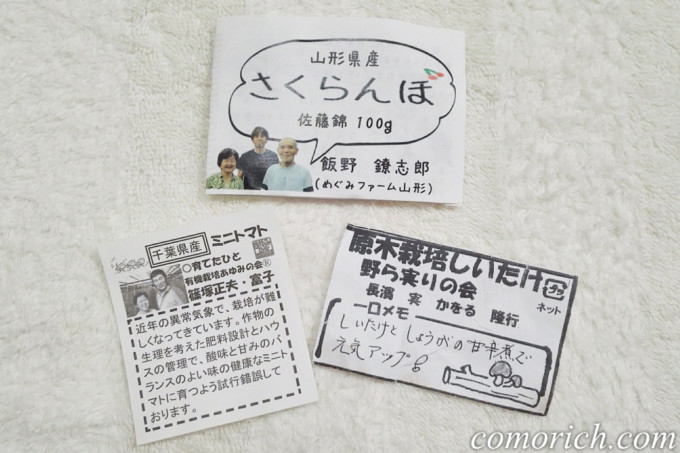 山形県産
さくらんぼ
佐藤錦 100g
飯野 鐐志郎
(めぐみファーム山形)
千葉県産 ミニトマト
○育てたひと
有機栽培あゆみの会
篠塚正夫・富子
近年の異常気象で、栽培が難
しくなってきています。作物の
生理を考えた肥料設計とハウ
スの管理で、酸味と甘みのバ
ランスのよい味の健康なミニト
マトに育つよう試行錯誤して
おります。
原木栽培しいたけ
野ら実りの会
ネット
長濱 実 かをる 隆行
一口メモ
しいたけと しょうがの甘辛煮で
元気アップ
comorich.com